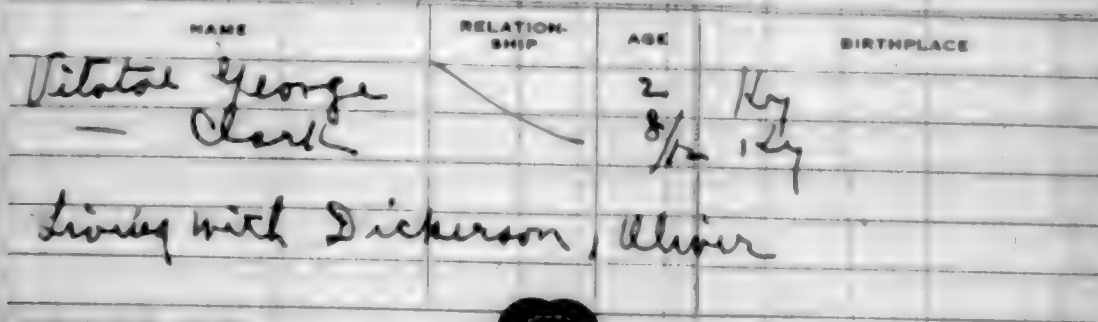 NAME RELATION-SHIP AGE BIRTHPLACE
Vitatoe George 2 Ky
— Clark 8/12 Ky
Living with Dickerson, Oliver